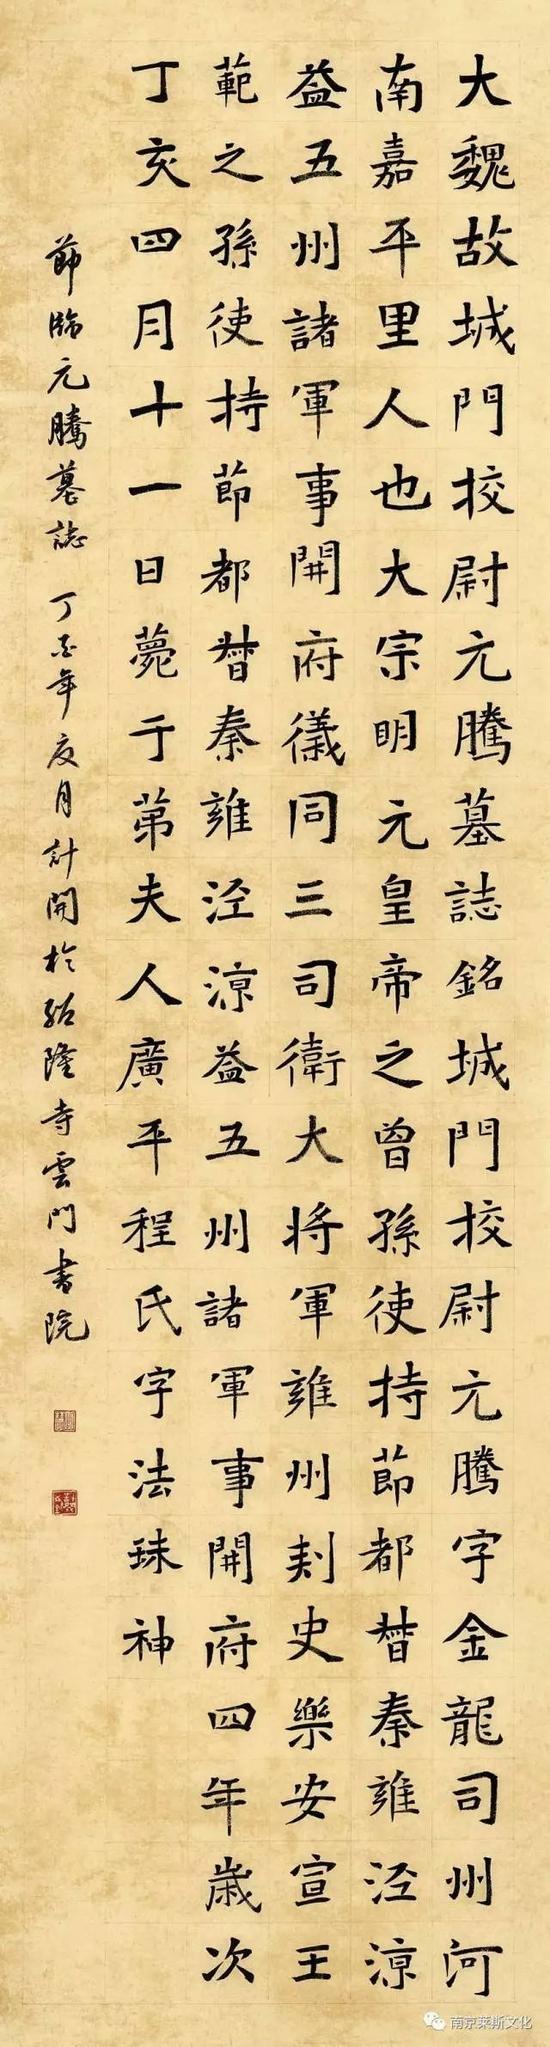 大魏故城門挍尉元騰墓誌銘城門挍尉元騰字金龍司州河
南嘉平里人也大宗明元皇帝之曾孫使持節都督秦雍涇涼
益五州諸軍事開府儀同三司衛大將軍雍州刾史樂安宣王
範之孫使持節都督秦雍涇涼益五州諸軍事開府四年歲次
丁亥四月十一日薨于苐夫人廣平程氏字法珠神
節臨元騰墓誌 丁酉年夏月計開於紹隆寺雲門書院
南京莱斯文化